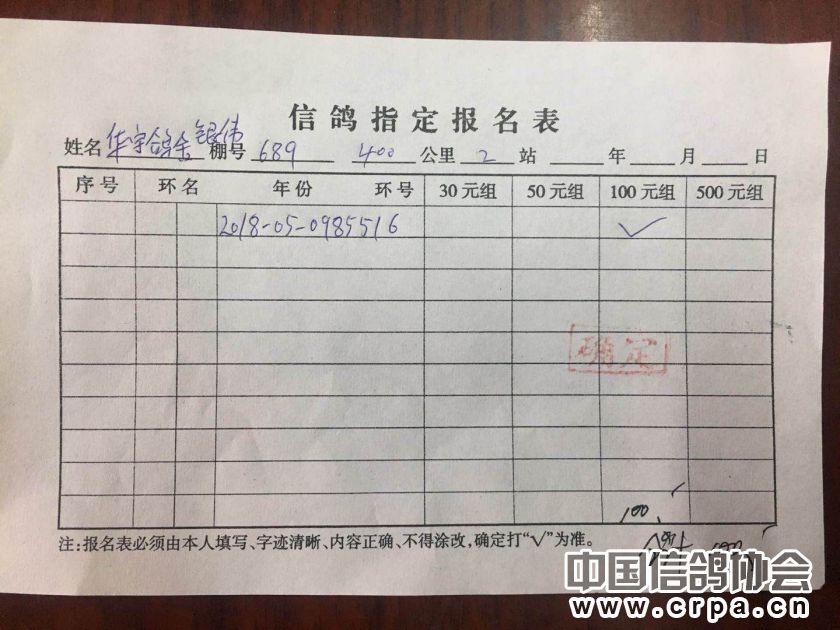 信鸽指定报名表
姓名 华宇鸽舍 银伟 棚号 689 400 公里 2 站 年 月 日
序号 环名 年份 环号 30元组 50元组 100元组 500元组
2018-05-0985516 ✓
确定
100
注:报名表必须由本人填写、字迹清晰、内容正确、不得涂改,确定打“√”为准。
中国信鸽协会
www.crpa.cn